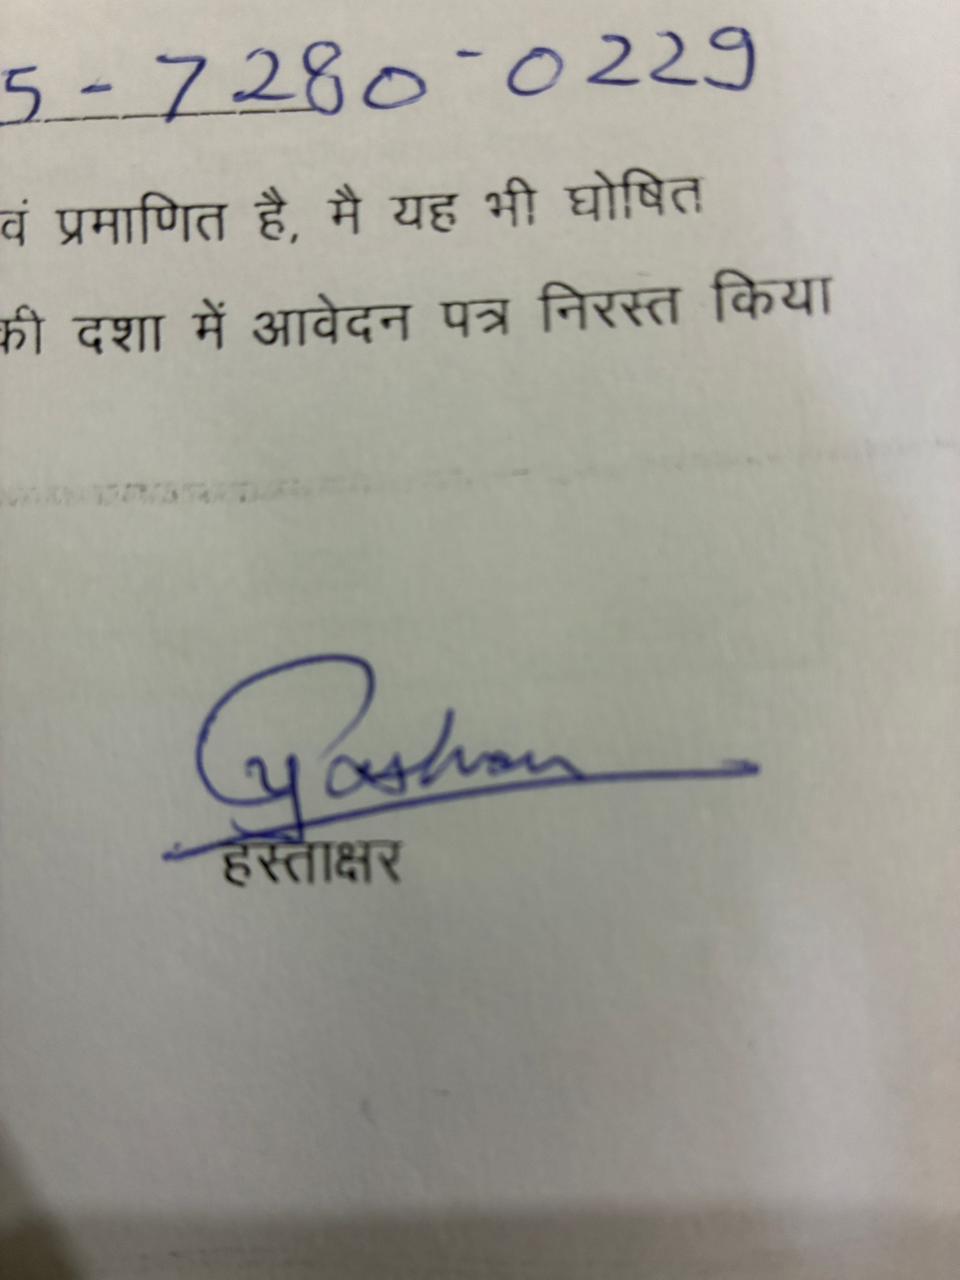 5-7280-0229
वं प्रमाणित है, मै यह भी घोषित
की दशा में आवेदन पत्र निरस्त किया
हस्ताक्षर